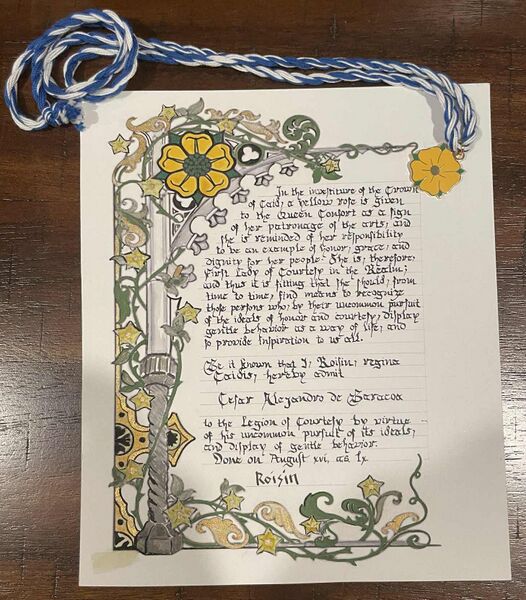 In the investiture of the Crown
of Caid, a yellow rose is given
to the Queen Consort as a sign
of her patronage of the arts, and
she is reminded of her responsibility
to be an example of honor, grace, and
dignity for her people. She is, therefore,
First Lady of Courtesy in the Realm;
and thus it is fitting that she should, from
time to time, find means to recognize
those persons who, by their uncommon pursuit
of the ideals of honor and courtesy, display
gentle behavior as a way of life, and
so provide inspiration to us all.
Be it known that I, Roisin, regina
Caidis, hereby admit
Cesar Alejandro de Saracoa
to the Legion of Courtesy by virtue
of his uncommon pursuit of its ideals,
and display of gentle behavior.
Done on August xvi, as lx
Roisin